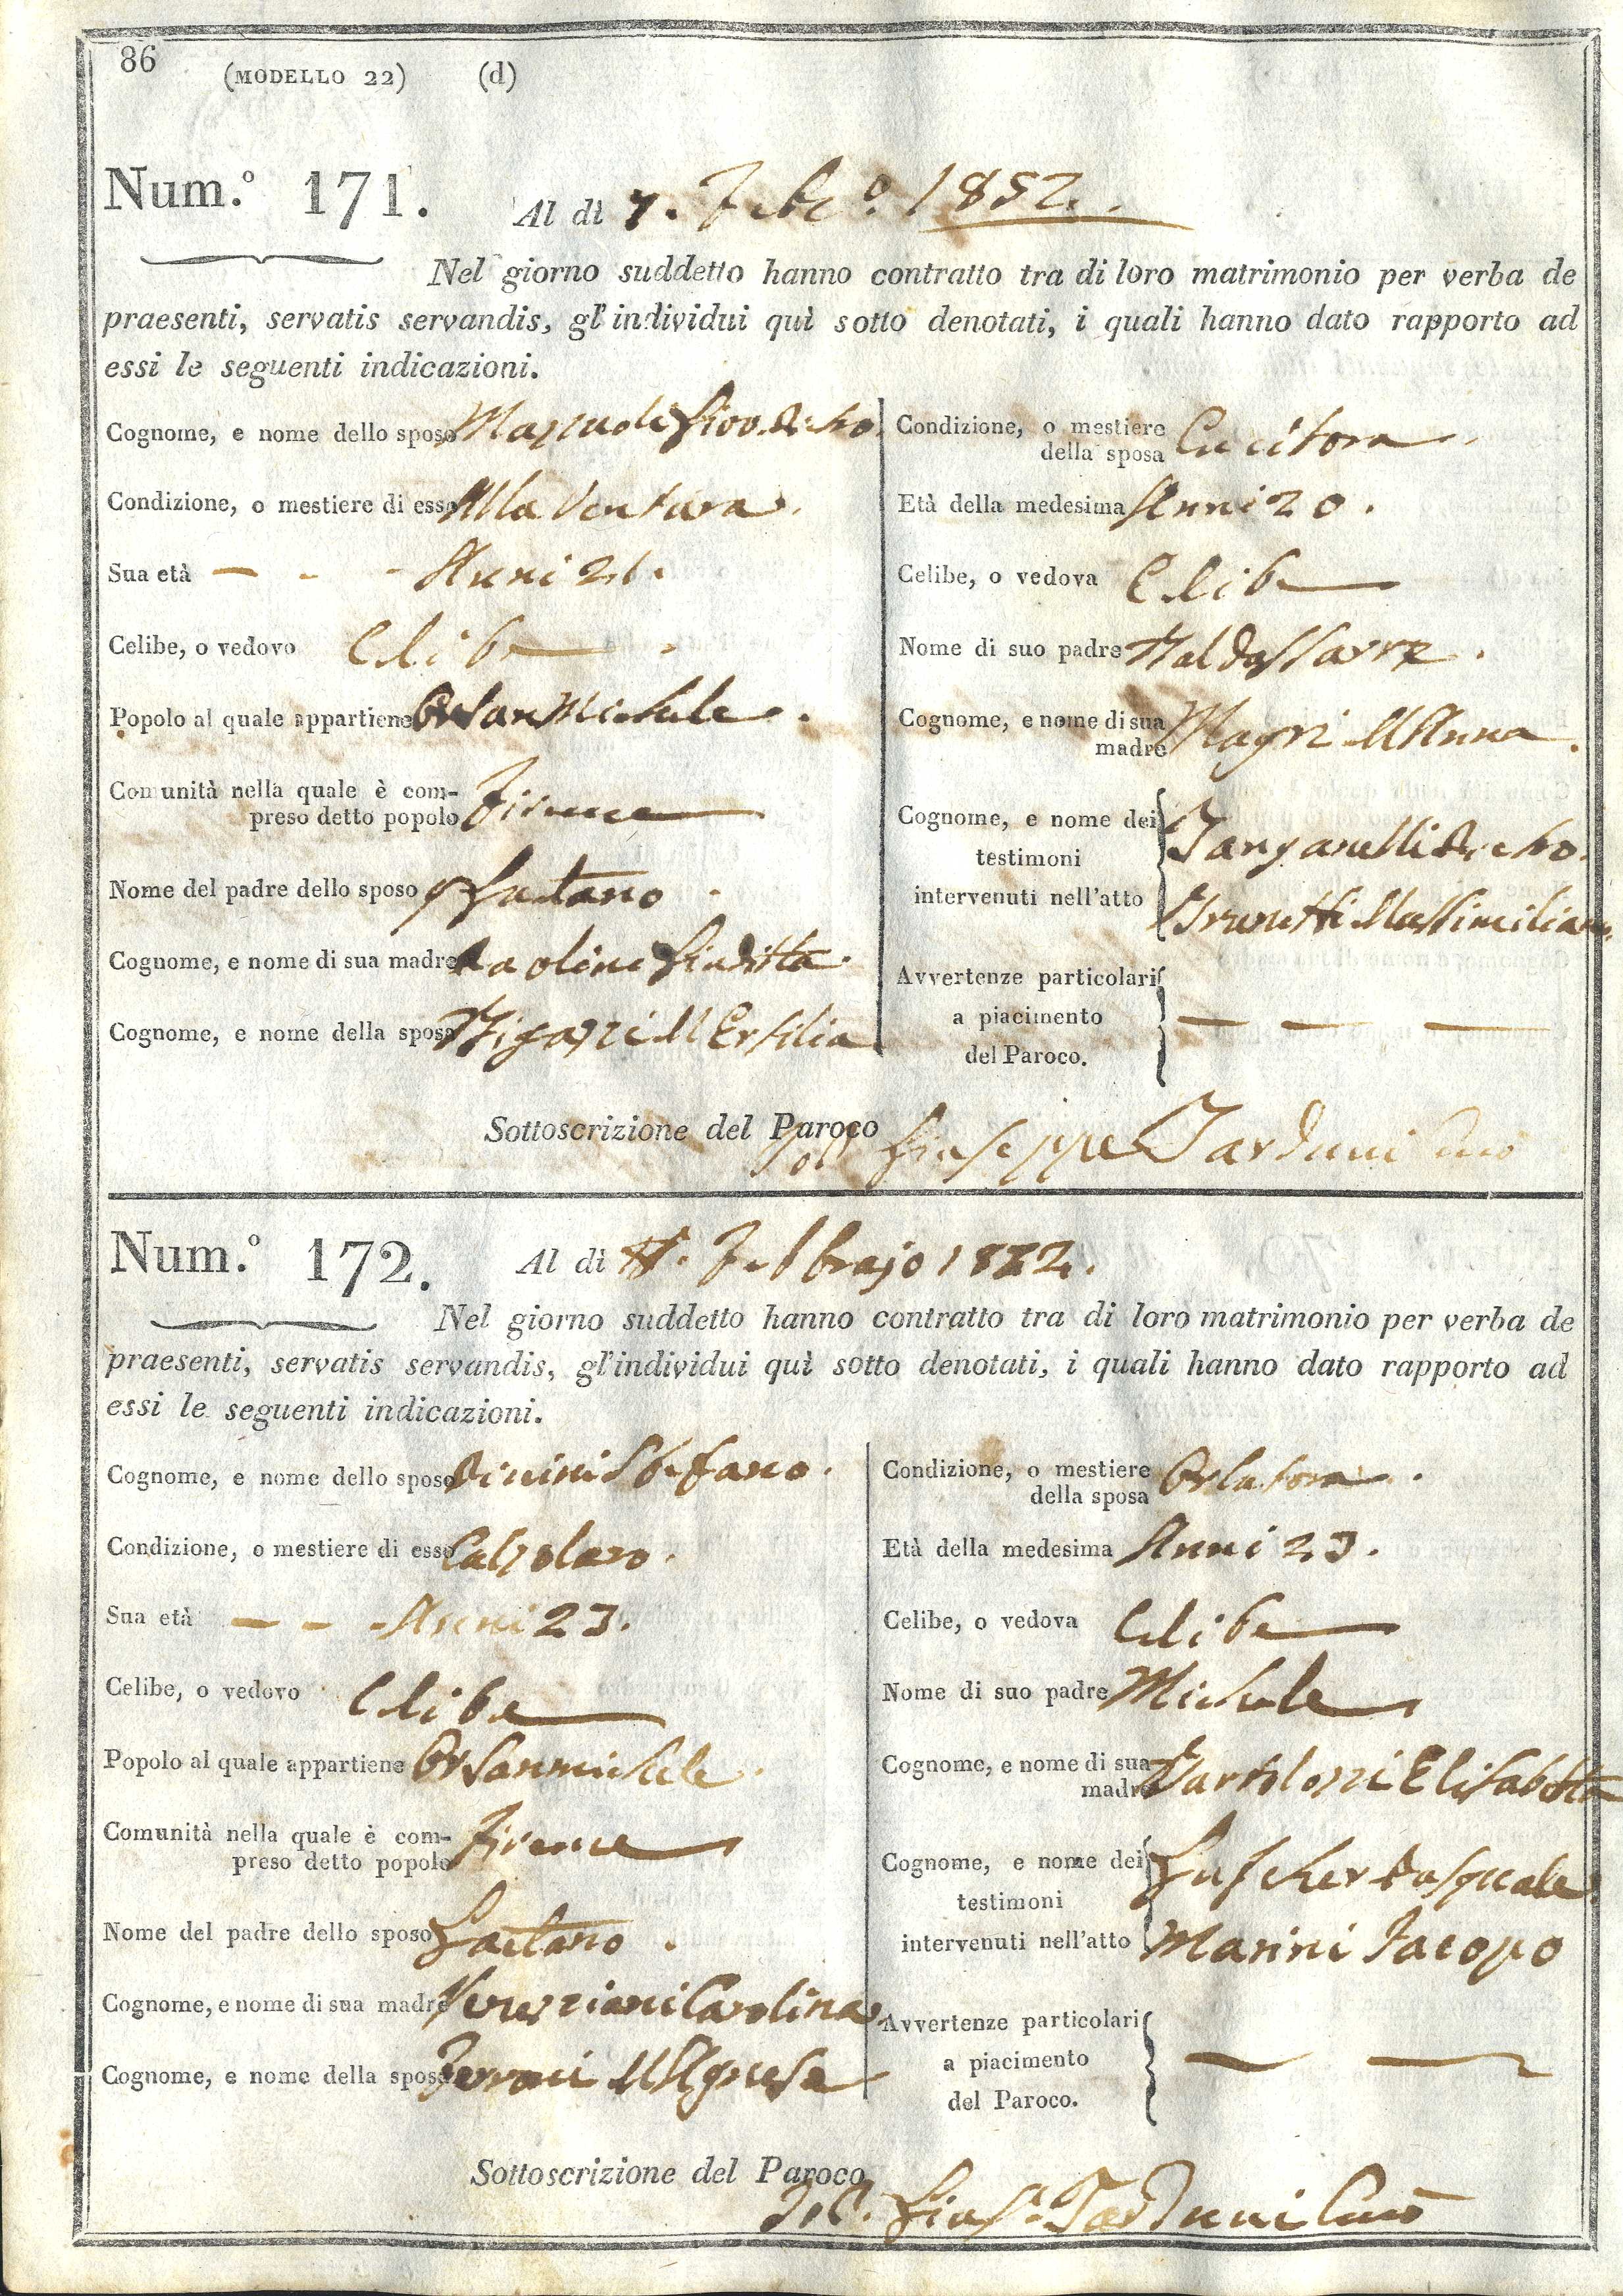 86
(MODELLO 22) (d)
Num.º 171. Al dì 7. Febº. 1852.
Nel giorno suddetto hanno contratto tra di loro matrimonio per verba de
praesenti, servatis servandis, gl'individui quì sotto denotati, i quali hanno dato rapporto ad
essi le seguenti indicazioni.
Cognome, e nome dello sposo
Condizione, o mestiere di esso Alla Ventura.
Sua età - - - Anni 21.
Celibe, o vedovo Celibe
Popolo al quale appartiene Orsanmichele.
Comunità nella quale è com-
preso detto popolo Firenze
Nome del padre dello sposo Gaetano.
Cognome, e nome di sua madre Paolini Giuditta.
Cognome, e nome della sposa Bigazzi M Ersilia
Condizione, o mestiere
della sposa Cucitora.
Età della medesima Anni 20.
Celibe, o vedova Celibe
Nome di suo padre Baldassarre.
Cognome, e nome di sua
madre Magri M Anna.
Cognome, e nome dei
testimoni
intervenuti nell'atto
Brunetti Massimiliano
Avvertenze particolari
a piacimento
del Paroco. — — —
Sottoscrizione del Paroco
Giuseppe Tarduni
Num.º 172. Al dì Febbrajo
Nel giorno suddetto hanno contratto tra di loro matrimonio per verba de
praesenti, servatis servandis, gl'individui quì sotto denotati, i quali hanno dato rapporto ad
essi le seguenti indicazioni.
Cognome, e nome dello sposo Stefano.
Condizione, o mestiere di esso Calzolaro.
Sua età - - - Anni 23.
Celibe, o vedovo Celibe
Popolo al quale appartiene Orsanmichele.
Comunità nella quale è com-
preso detto popolo Firenze
Nome del padre dello sposo Gaetano.
Cognome, e nome di sua madre Carolina
Cognome, e nome della sposa M Agnesa
Condizione, o mestiere
della sposa Orlatora.
Età della medesima Anni 23.
Celibe, o vedova Celibe
Nome di suo padre Michele
Cognome, e nome di sua
madre Bartolozzi Elisabetta
Cognome, e nome dei
testimoni
intervenuti nell'atto
Pasquale
Marini Jacopo
Avvertenze particolari
a piacimento
del Paroco. — —
Sottoscrizione del Paroco
Tarduni